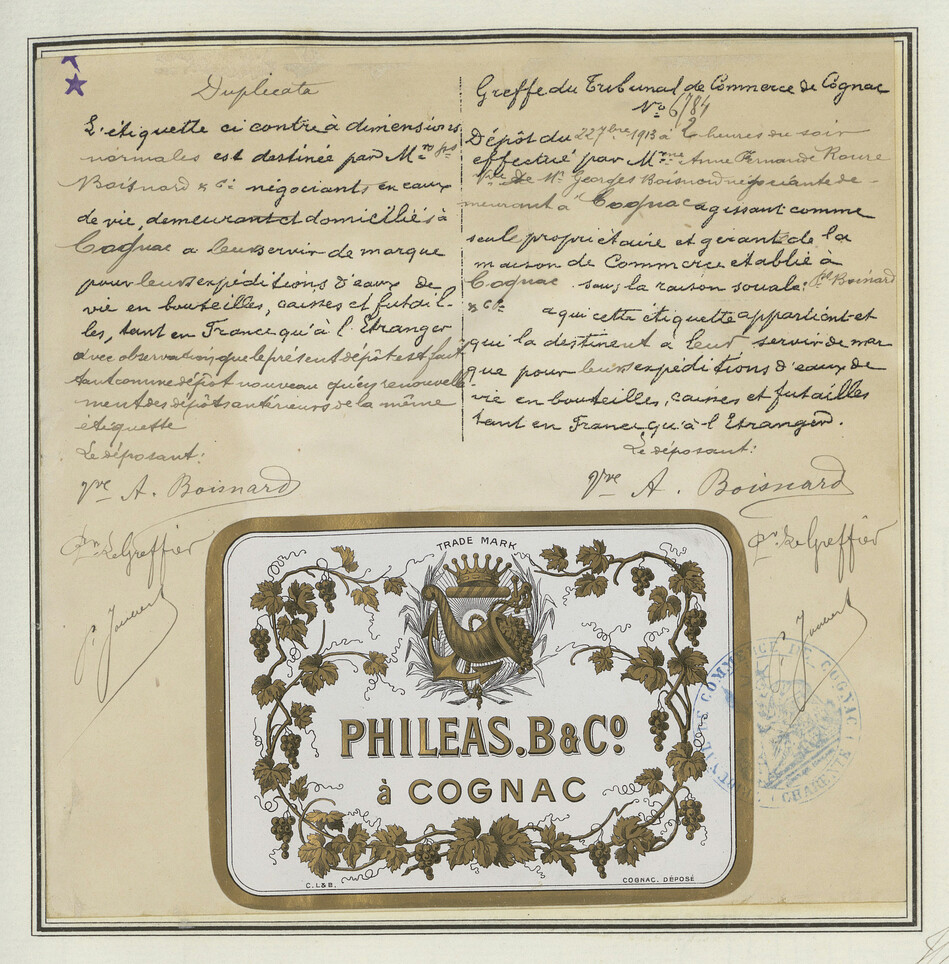 Duplicata
L'étiquette ci contre à dimensions
normales est destinée par M.rs fils
Boisnard & Cie négociants en eaux
de vie, demeurant et domiciliés à
Cognac a leur servir de marque
pour leurs expéditions d'eaux de
vie en bouteilles, caisses et futail-
les, tant en France qu'à l'Etranger
avec observation que le présent dépôt est fait
tant comme dépôt nouveau qu'en renouvelle
ment des dépôts antérieurs de la même
étiquette
Le déposant:
Vve A. Boisnard
Pr. Le Greffier
Greffe du Tribunal de Commerce de Cognac
No 6784
Dépôt du 22 7bre 1913 à 2 heures du soir
effectué par Mme Anne Fernande Roure
Vve de Mr Georges Boisnard négociante de-
meurant à Cognac agissant comme
seule propriétaire et gérante de la
maison de Commerce établie à
Cognac sous la raison sociale: fils Boisnard
& Cie a qui cette étiquette appartient et
qui la destinent a leur servir de mar
que pour leurs expéditions d'eaux de
vie en bouteilles, caisses et futailles
tant en France qu'à l'Etranger.
Le déposant:
Vve A. Boisnard
Pr. Le Greffier
TRADE MARK
PHILEAS.B&Co
à COGNAC
C.L&B.
COGNAC. DÉPOSÉ
COMMERCE DE COGNAC
CHARENTE